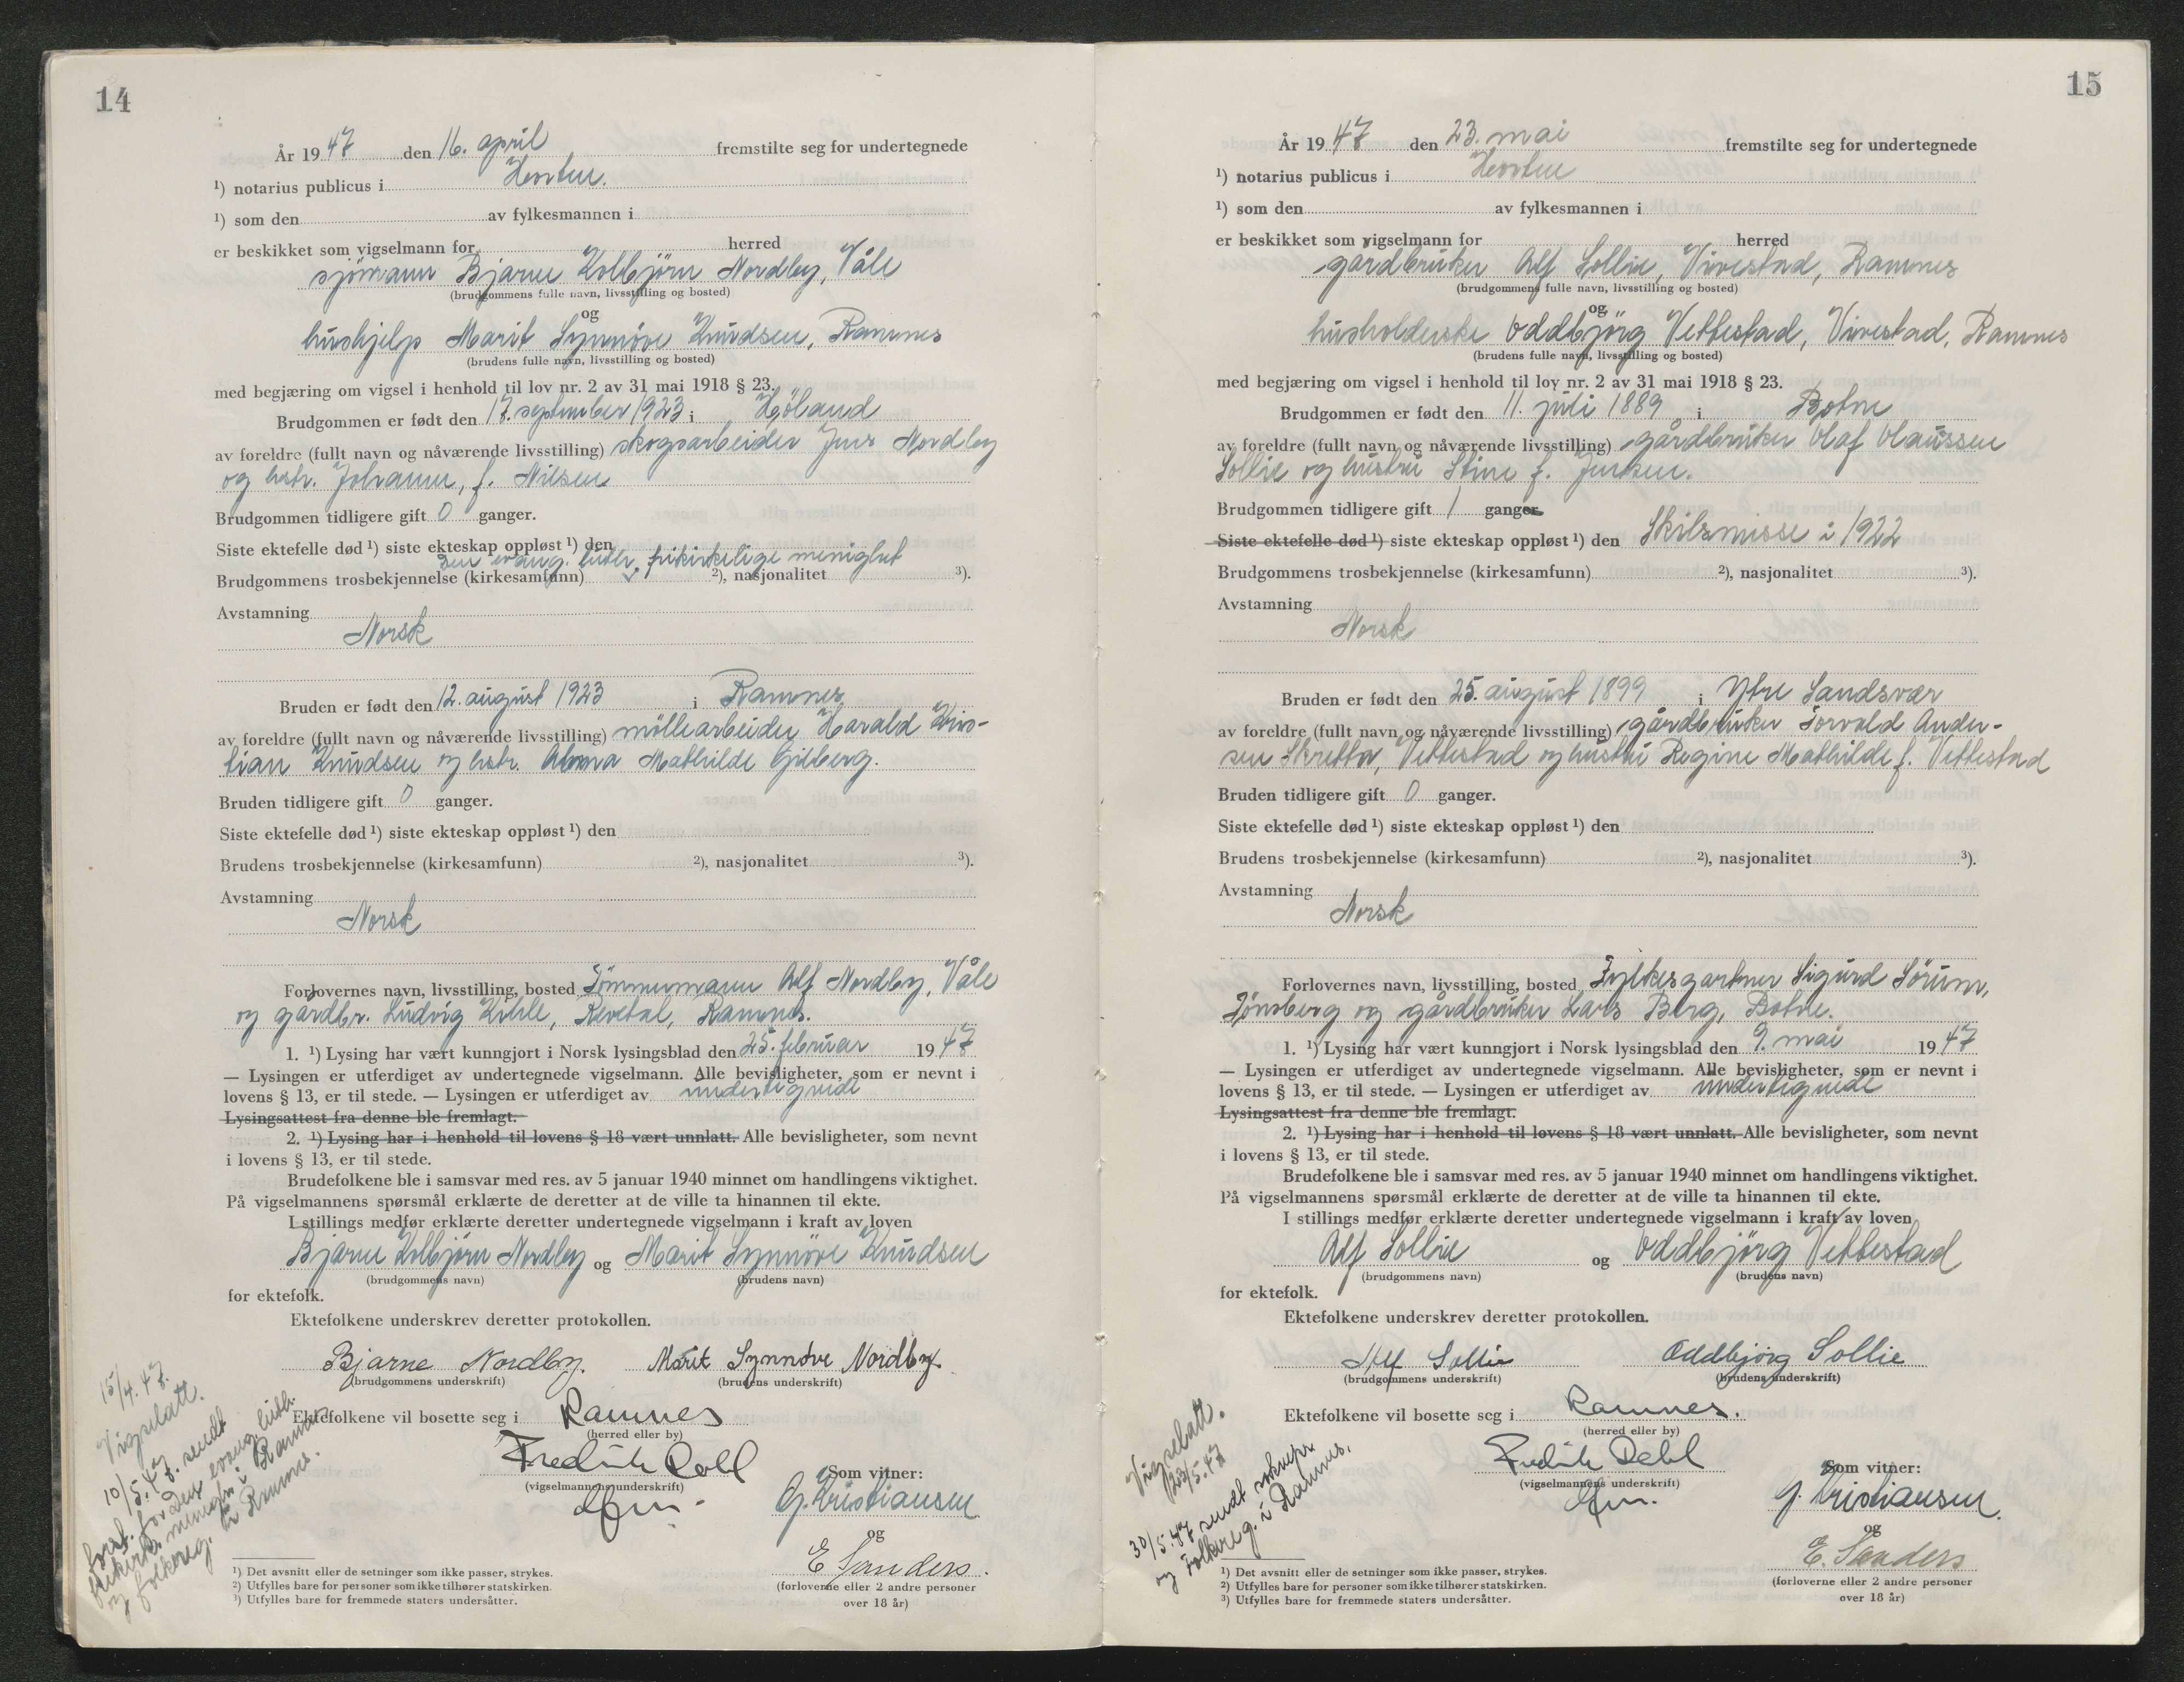 14
År 1947 den 16. april fremstilte seg for undertegnede
¹) notarius publicus i Horten.
¹) som den av fylkesmannen i
er beskikket som vigselmann for herred
sjömann Bjarne Kolbjörn Nordby, Våle
(brudgommens fulle navn, livsstilling og bosted)
og
hushjelp Marit Synnöve Knudsen, Ramnes
(brudens fulle navn, livsstilling og bosted)
med begjæring om vigsel i henhold til lov nr. 2 av 31 mai 1918 § 23.
Brudgommen er født den 17. september 1923 i Höland
av foreldre (fullt navn og nåværende livsstilling) skogsarbeider Jens Nordby
og hstr. Johanne, f. Nilsen
Brudgommen tidligere gift 0 ganger.
Siste ektefelle død ¹) siste ekteskap oppløst ¹) den
den evang. luth. frikirkelige menighet
Brudgommens trosbekjennelse (kirkesamfunn) ²), nasjonalitet ³).
Avstamning
Norsk
Bruden er født den 12. august 1923 i Ramnes
av foreldre (fullt navn og nåværende livsstilling) möllearbeider Harald Kris-
tian Knudsen og hstr. Alma Mathilde Gilberg.
Bruden tidligere gift 0 ganger.
Siste ektefelle død ¹) siste ekteskap oppløst ¹) den
Brudens trosbekjennelse (kirkesamfunn) ²), nasjonalitet ³).
Avstamning
Norsk
Forlovernes navn, livsstilling, bosted Tömmermann Alf Nordby, Våle
og gårdbr. Ludvig Kihle, Revetal, Ramnes.
1. ¹) Lysing har vært kunngjort i Norsk lysingsblad den 25. februar 1947
— Lysingen er utferdiget av undertegnede vigselmann. Alle bevisligheter, som er nevnt i
lovens § 13, er til stede. — Lysingen er utferdiget av undertegnede
Lysingsattest fra denne ble fremlagt.
2. ¹) Lysing har i henhold til lovens § 18 vært unnlatt. Alle bevisligheter, som nevnt
i lovens § 13, er til stede.
Brudefolkene ble i samsvar med res. av 5 januar 1940 minnet om handlingens viktighet.
På vigselmannens spørsmål erklærte de deretter at de ville ta hinannen til ekte.
I stillings medfør erklærte deretter undertegnede vigselmann i kraft av loven
Bjarne Kolbjörn Nordby og Marit Synnöve Knudsen
(brudgommens navn) (brudens navn)
for ektefolk.
Ektefolkene underskrev deretter protokollen.
Bjarne Nordby. Marit Synnöve Nordby.
(brudgommens underskrift) (brudens underskrift)
Ektefolkene vil bosette seg i Ramnes
(herred eller by)
Fredrik
(vigselmannens underskrift)
Som vitner:
G. Kristiansen
og
E Sanders.
(forloverne eller 2 andre personer
over 18 år)
15/4.47.
Vigselatt.
10/5.47. sendt
forst. for den evang. luth.
frikirk. menigh. i Ramnes
og folkereg. i Ramnes.
¹) Det avsnitt eller de setninger som ikke passer, strykes.
²) Utfylles bare for personer som ikke tilhører statskirken.
³) Utfylles bare for fremmede staters undersåtter.
15
År 1947 den 23. mai fremstilte seg for undertegnede
¹) notarius publicus i Horten
¹) som den av fylkesmannen i
er beskikket som vigselmann for herred
gårdbruker Alf Sollie, Vivestad, Ramnes
(brudgommens fulle navn, livsstilling og bosted)
og
husholderske Oddbjörg Vettestad, Vivestad, Ramnes
(brudens fulle navn, livsstilling og bosted)
med begjæring om vigsel i henhold til lov nr. 2 av 31 mai 1918 § 23.
Brudgommen er født den 11. juli 1889 i Botne
av foreldre (fullt navn og nåværende livsstilling) gårdbruker Olaf Olaussen
Sollie og hustru Stine f. Jensen.
Brudgommen tidligere gift 1 ganger
Siste ektefelle død ¹) siste ekteskap oppløst ¹) den Skilsmisse i 1922
Brudgommens trosbekjennelse (kirkesamfunn) ²), nasjonalitet ³).
Avstamning
Norsk
Bruden er født den 25. august 1899 i Ytre Sandsvær
av foreldre (fullt navn og nåværende livsstilling) gårdbruker Torvald Ander-
sen Skretta, Vettestad og hustru Regine Mathilde f. Vettestad
Bruden tidligere gift 0 ganger.
Siste ektefelle død ¹) siste ekteskap oppløst ¹) den
Brudens trosbekjennelse (kirkesamfunn) ²), nasjonalitet ³).
Avstamning
Norsk
Forlovernes navn, livsstilling, bosted Fylkesgartner Sigurd Sörum,
Tönsberg og gårdbruker Lars Berg, Botne.
1. ¹) Lysing har vært kunngjort i Norsk lysingsblad den 9. mai 1947
— Lysingen er utferdiget av undertegnede vigselmann. Alle bevisligheter, som er nevnt i
lovens § 13, er til stede. — Lysingen er utferdiget av undertegnede
Lysingsattest fra denne ble fremlagt.
2. ¹) Lysing har i henhold til lovens § 18 vært unnlatt. Alle bevisligheter, som nevnt
i lovens § 13, er til stede.
Brudefolkene ble i samsvar med res. av 5 januar 1940 minnet om handlingens viktighet.
På vigselmannens spørsmål erklærte de deretter at de ville ta hinannen til ekte.
I stillings medfør erklærte deretter undertegnede vigselmann i kraft av loven
Alf Sollie og Oddbjörg Vettestad
(brudgommens navn) (brudens navn)
for ektefolk.
Ektefolkene underskrev deretter protokollen.
Alf Sollie Oddbjörg Sollie
(brudgommens underskrift) (brudens underskrift)
Ektefolkene vil bosette seg i Ramnes.
(herred eller by)
Fredrik
(vigselmannens underskrift)
Som vitner:
G. Kristiansen.
og
E. Sanders
(forloverne eller 2 andre personer
over 18 år)
Vigselatt.
23/5.47
30/5.47 sendt soknepr.
og Folkereg. i Ramnes.
¹) Det avsnitt eller de setninger som ikke passer, strykes.
²) Utfylles bare for personer som ikke tilhører statskirken.
³) Utfylles bare for fremmede staters undersåtter.